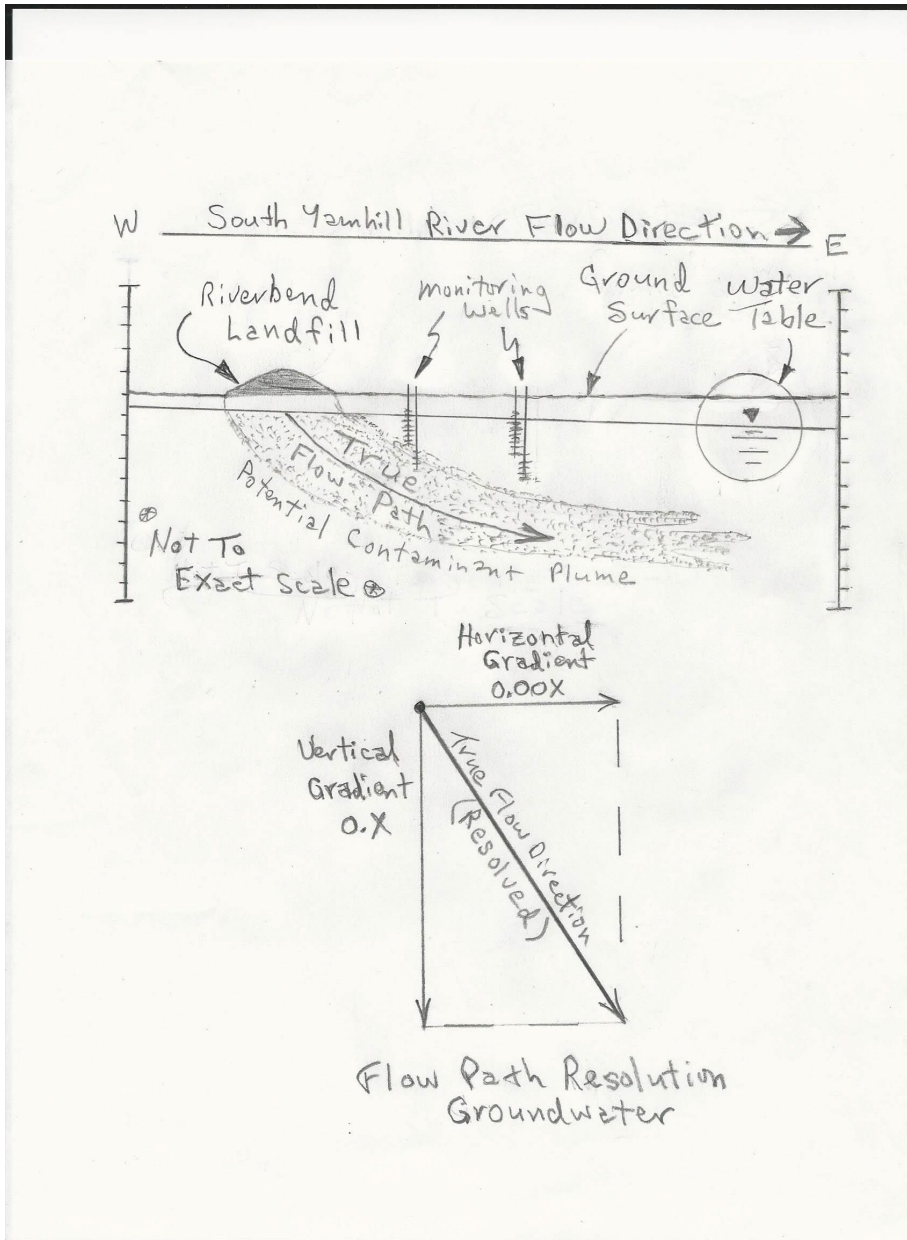 W South Yamhill River Flow Direction E
Riverbend
Landfill
Monitoring
Wells
Ground
Surface
Water
Table
True
Flow Path
Potential Contaminant Plume
Not To
Exact Scale
Horizontal
Gradient
0.00X
Vertical
Gradient
0.X
True Flow Direction
(Resolved)
Flow Path Resolution
Groundwater